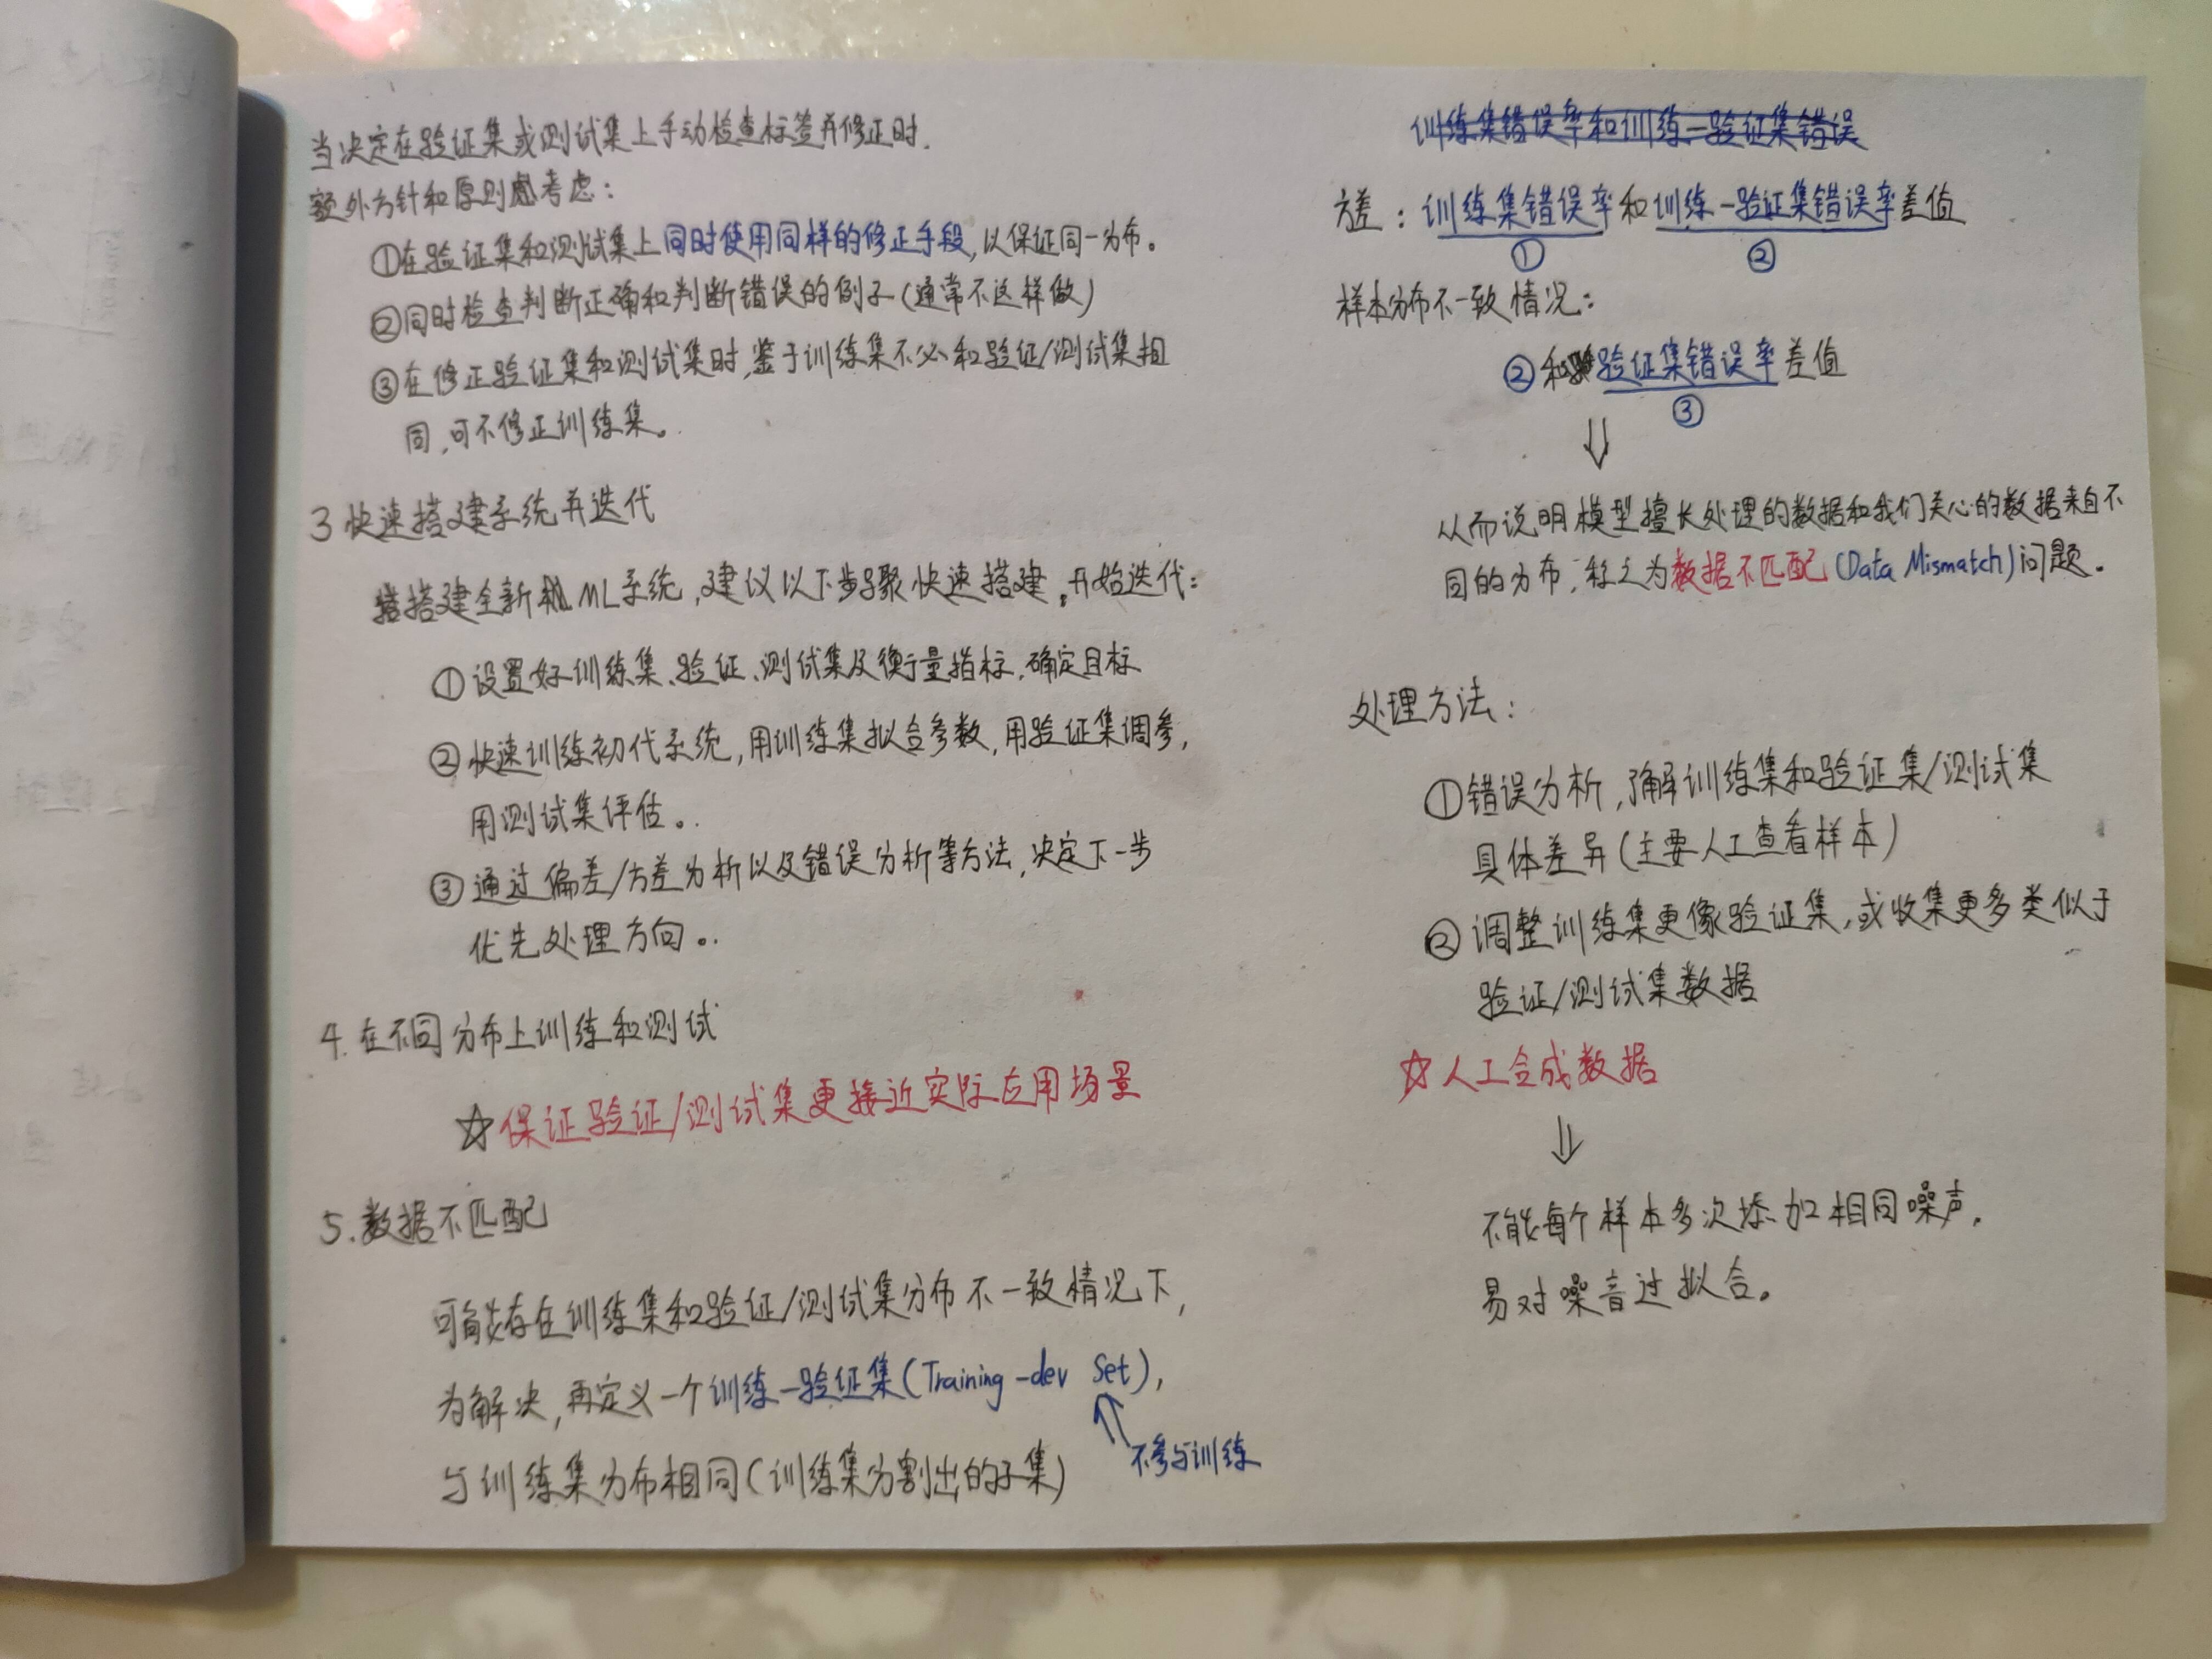 当决定在验证集或测试集上手动检查标签并修正时.
额外方针和原则考虑:
①在验证集和测试集上同时使用同样的修正手段,以保证同一分布。
②同时检查判断正确和判断错误的例子(通常不这样做)
③在修正验证集和测试集时,鉴于训练集不必和验证/测试集相
同,可不修正训练集。
3 快速搭建系统并迭代
搭建全新ML系统,建议以下步骤快速搭建,开始迭代:
①设置好训练集、验证、测试集及衡量指标,确定目标
②快速训练初代系统,用训练集拟合参数,用验证集调参,
用测试集评估。
③通过偏差/方差分析以及错误分析等方法,决定下一步
优先处理方向。
4.在不同分布上训练和测试
☆保证验证/测试集更接近实际应用场景
5.数据不匹配
可能存在训练集和验证/测试集分布不一致情况下,
为解决,再定义一个训练-验证集(Training-dev Set),
不参与训练
与训练集分布相同(训练集分割出的子集)
训练集错误率和训练-验证集错误
方差:训练集错误率和训练-验证集错误率差值
① ②
样本分布不一致情况:
②和验证集错误率差值
③
⇓
从而说明模型擅长处理的数据和我们关心的数据来自不
同的分布,称之为数据不匹配(Data Mismatch)问题。
处理方法:
①错误分析,了解训练集和验证集/测试集
具体差异(主要人工查看样本)
②调整训练集更像验证集,或收集更多类似于
验证/测试集数据
☆人工合成数据
⇓
不能每个样本多次添加相同噪声,
易对噪音过拟合。